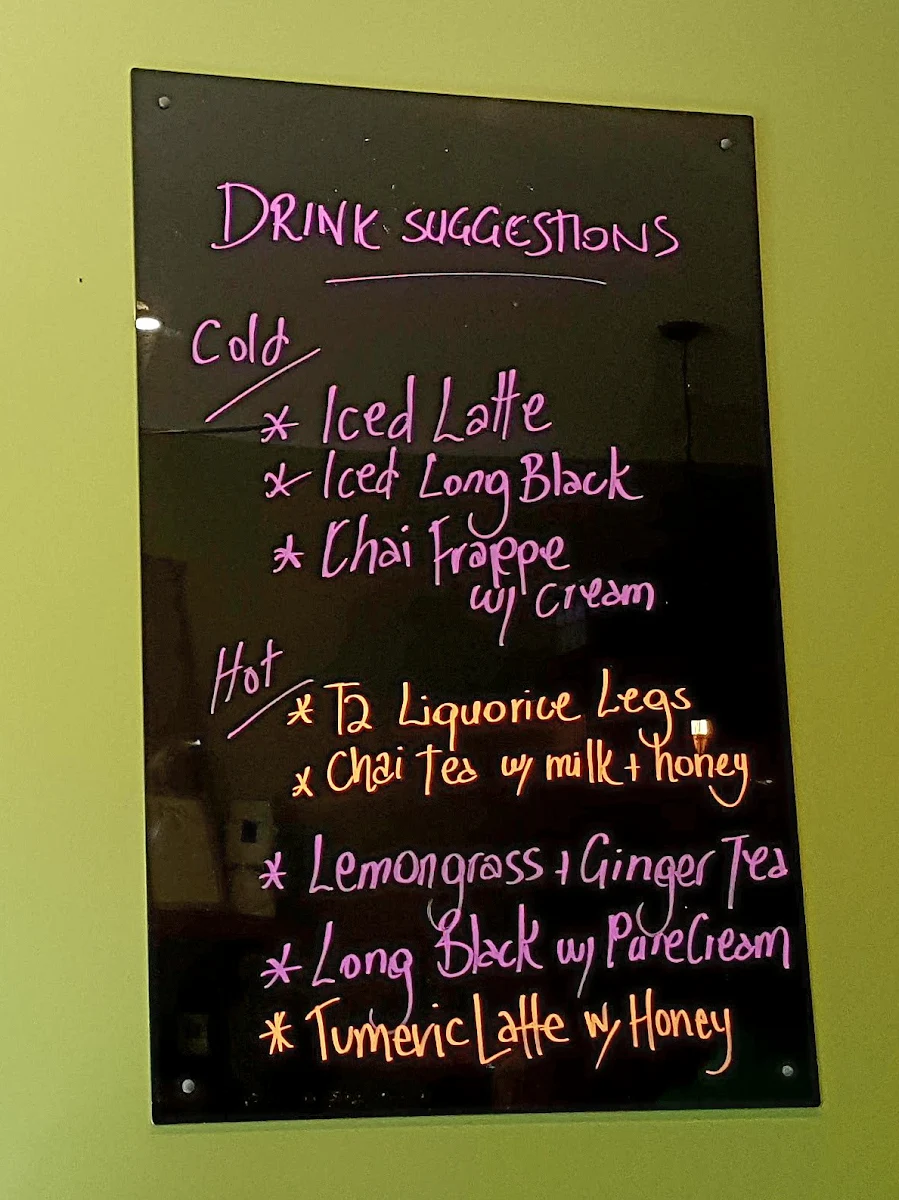 DRINK SUGGESTIONS
Cold
* Iced Latte
* Iced Long Black
* Chai Frappe
w/ cream
Hot
* T2 Liquorice Legs
* Chai Tea w/ milk + honey
* Lemongrass + Ginger Tea
* Long Black w/ Pure Cream
* Tumeric Latte w/ Honey